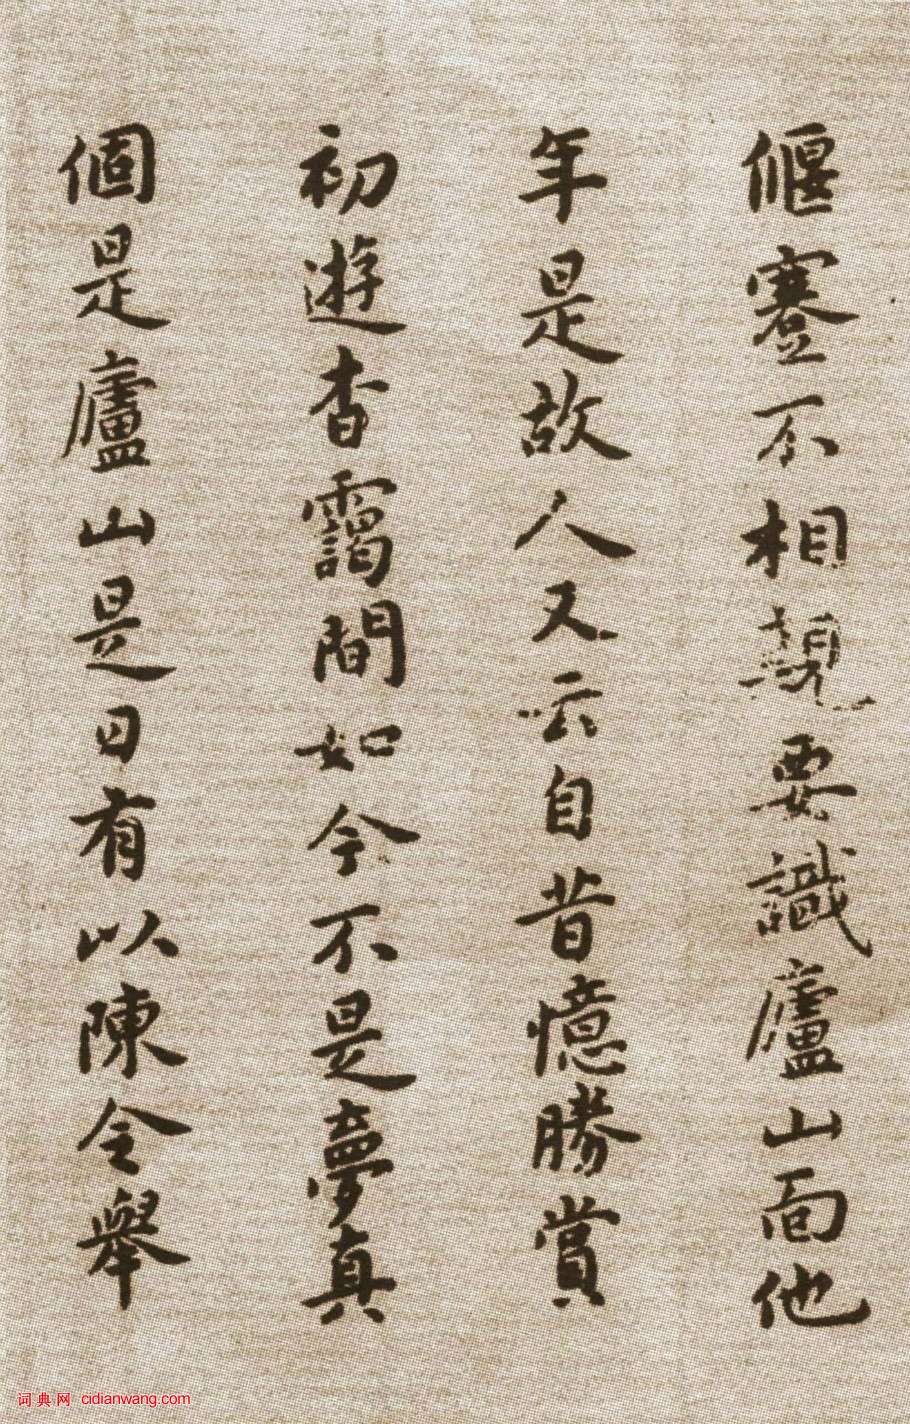 偃蹇不相親要識廬山面他
年是故人又云自昔憶勝賞
初遊杳靄間如今不是夢真
個是廬山是日有以陳令舉
词典网 cidianwang.com